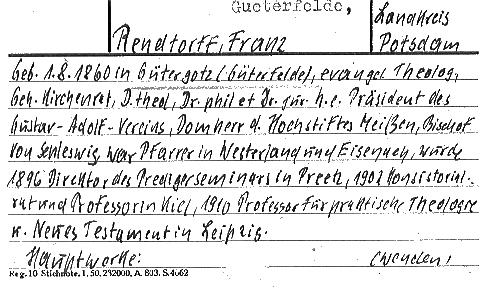 Gueterfelde,
Landkreis
Rendtorff, Franz
Potsdam
Geb. 1.8.1860 in Gütergotz (Güterfelde), evangel Theolog,
Geh. Kirchenrat, D. theol, Dr. phil et Dr. jur. h.c. Präsident des
Gustav-Adolf-Vereins, Domherr d. Hochstiftes Meißen, Bischof
von Schleswig, war Pfarrer in Westerland und Eisenach, wurde
1896 Direktor des Predigerseminars in Preetz, 1902 Konsistorial-
rat und Professor in Kiel, 1910 Professor für praktische Theologie
u. Neues Testament in Leipzig.
Hauptwerke: (wenden!
Reg. 10 Stichnote, 1, 50, 292000, A. 803. S. 4662